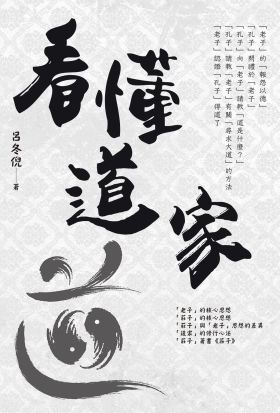 看懂道家
呂冬倪—著
「老子」的「報怨以德」
「孔子」問禮於「老子」
「孔子」向「老子」請教「道是什麼？」
「孔子」請教「老子」有關「尋求大道」的方法
「老子」認證「孔子」得道了
「老子」的核心思想
「莊子」的核心思想
「莊子」與「老子」思想的差異
「道家」的修行心法
「莊子」著書《莊子》